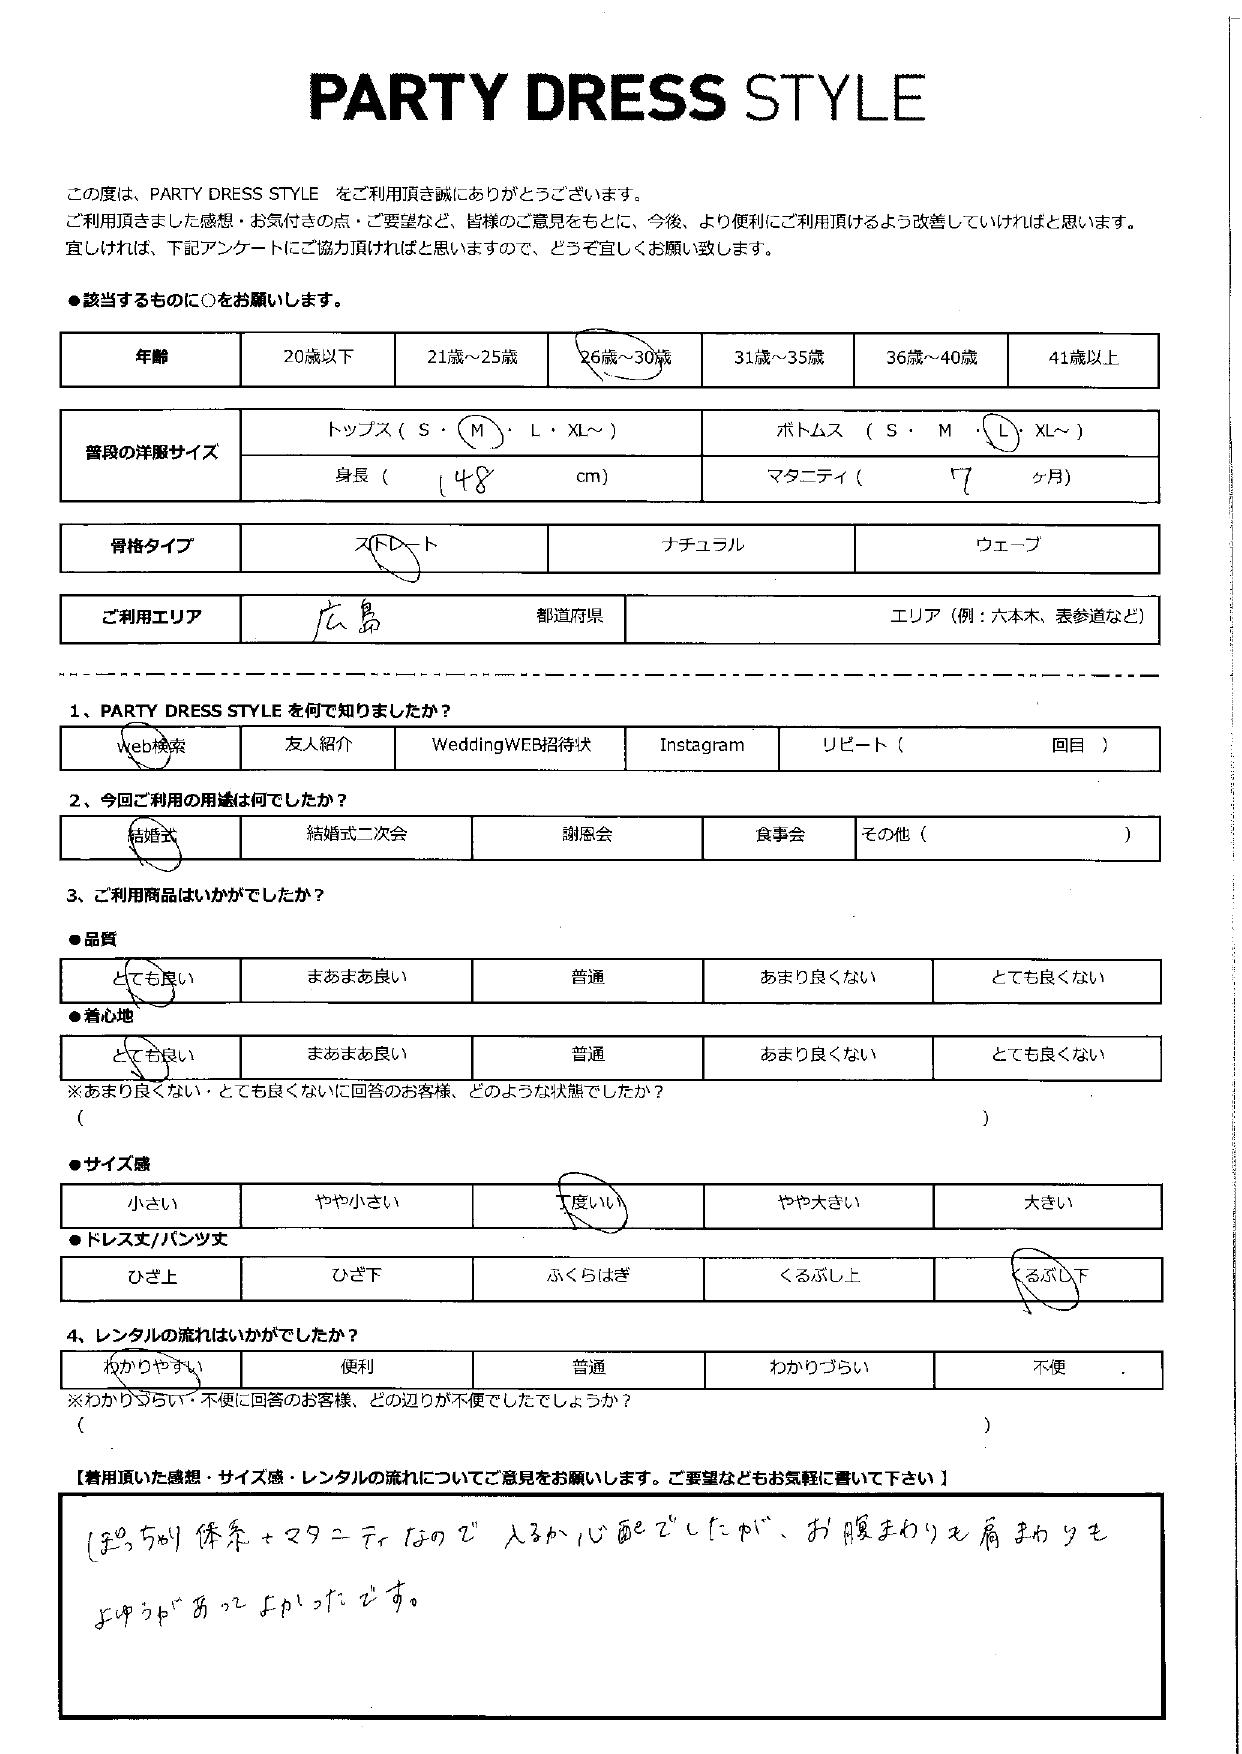 PARTY DRESS STYLE
この度は、PARTY DRESS STYLE をご利用頂き誠にありがとうございます。
ご利用頂きました感想・お気付きの点・ご要望など、皆様のご意見をもとに、今後、より便利にご利用頂けるよう改善していければと思います。
宜しければ、下記アンケートにご協力頂ければと思いますので、どうぞ宜しくお願い致します。
●該当するものに○をお願いします。
年齢 20歳以下 21歳～25歳 26歳～30歳 31歳～35歳 36歳～40歳 41歳以上
普段の洋服サイズ トップス ( S ・ M ・ L ・ XL～ ) ボトムス ( S ・ M ・ L ・ XL～ )
身長 ( 148 cm) マタニティ ( 7 ヶ月)
骨格タイプ ストレート ナチュラル ウェーブ
ご利用エリア 広島 都道府県 エリア（例：六本木、表参道など）
1、PARTY DRESS STYLE を何で知りましたか？
web検索 友人紹介 WeddingWEB招待状 Instagram リピート（ 回目 ）
2、今回ご利用の用途は何でしたか？
結婚式 結婚式二次会 謝恩会 食事会 その他（ ）
3、ご利用商品はいかがでしたか？
●品質
とても良い まあまあ良い 普通 あまり良くない とても良くない
●着心地
とても良い まあまあ良い 普通 あまり良くない とても良くない
※あまり良くない・とても良くないに回答のお客様、どのような状態でしたか？
（ ）
●サイズ感
小さい やや小さい 丁度いい やや大きい 大きい
●ドレス丈/パンツ丈
ひざ上 ひざ下 ふくらはぎ くるぶし上 くるぶし下
4、レンタルの流れはいかがでしたか？
わかりやすい 便利 普通 わかりづらい 不便
※わかりづらい・不便に回答のお客様、どの辺りが不便でしたでしょうか？
（ ）
【着用頂いた感想・サイズ感・レンタルの流れについてご意見をお願いします。ご要望などもお気軽に書いて下さい 】
ぽっちゃり体系+マタニティなので 入るか心配でしたが、お腹まわりも肩まわりも
よゆうがあってよかったです。